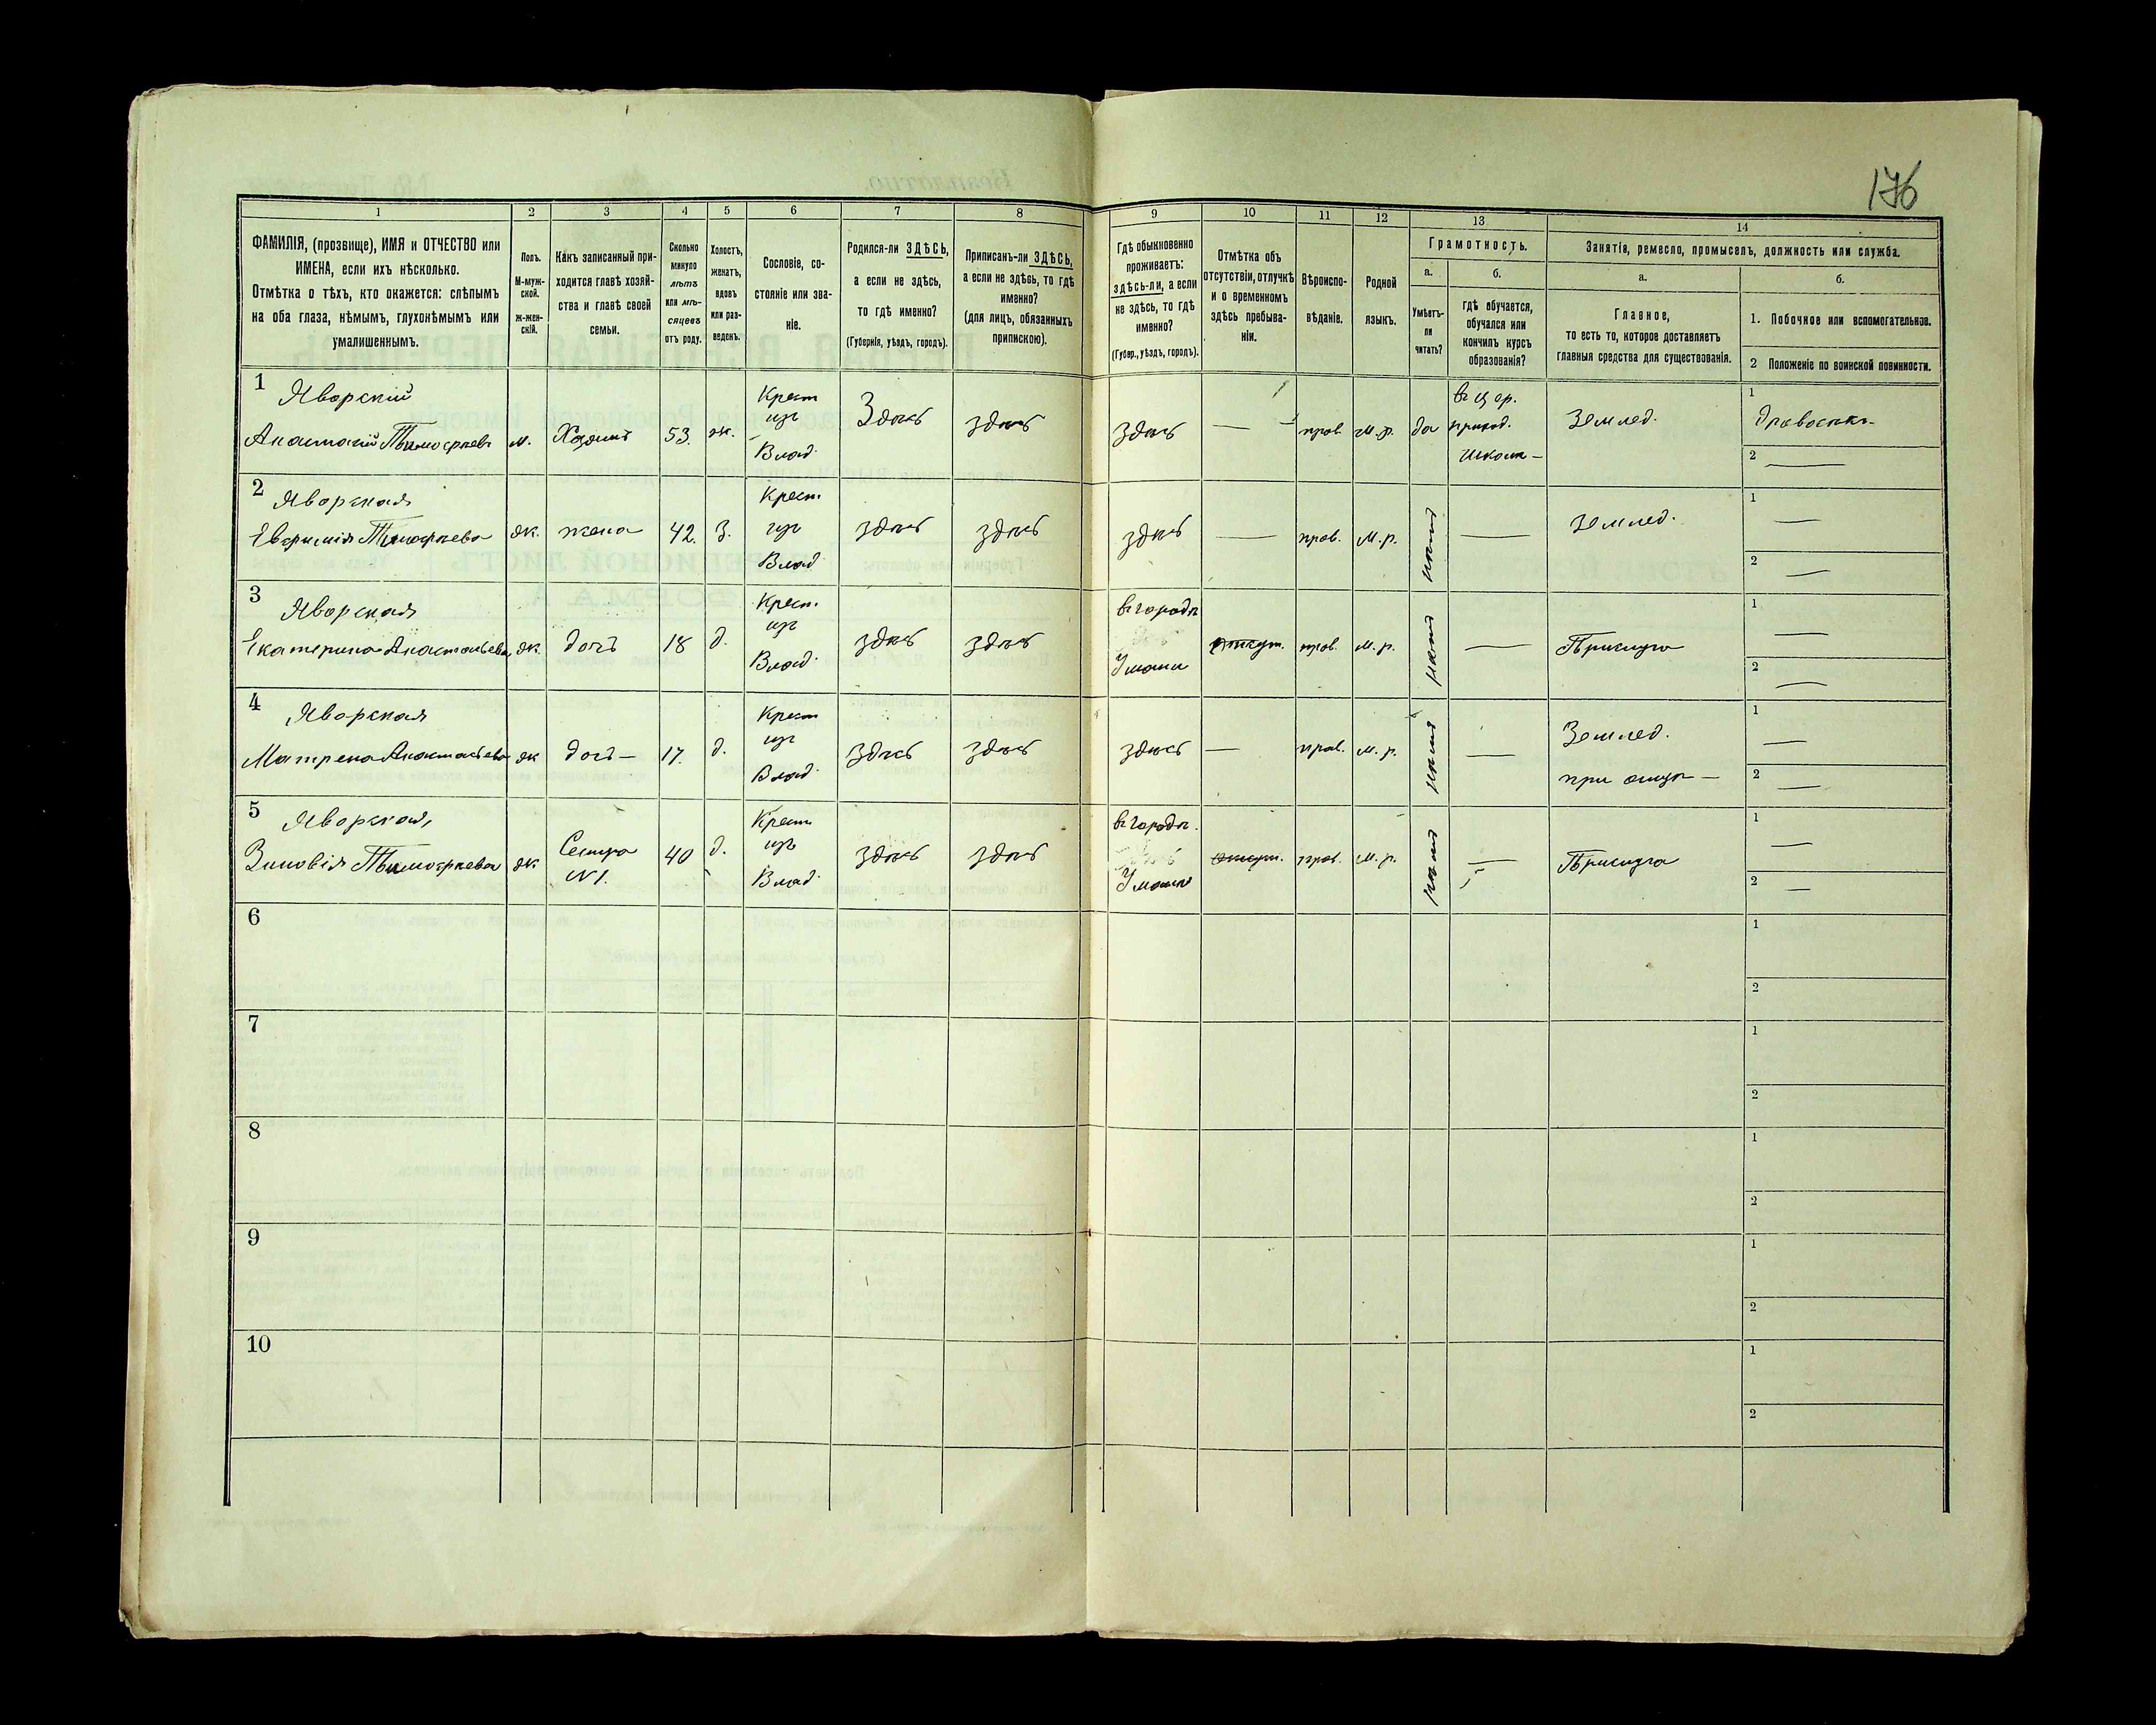 176
1 2 3 4 5 6 7 8 9 10 11 12 13 14
ФАМИЛІЯ, (прозвище), ИМЯ и ОТЧЕСТВО или
ИМЕНА, если ихъ нѣсколько.
Отмѣтка о тѣхъ, кто окажется: слѣпымъ
на оба глаза, нѣмымъ, глухонѣмымъ или
умалишеннымъ.
Полъ.
М-муж-
ской.
ж-жен-
скій.
Какъ записанный при-
ходится главѣ хозяй-
ства и главѣ своей
семьи.
Сколько
минуло
лѣтъ
или мѣ-
сяцевъ
отъ роду.
Холостъ,
женатъ,
вдовъ
или раз-
веденъ.
Сословіе, со-
стояніе или зва-
ніе.
Родился-ли ЗДѢСЬ,
а если не здѣсь,
то гдѣ именно?
(Губернія, уѣздъ, городъ).
Приписанъ-ли ЗДѢСЬ,
а если не здѣсь, то гдѣ
именно?
(для лицъ, обязанныхъ
припискою).
Гдѣ обыкновенно
проживаетъ:
здѣсь-ли, а если
не здѣсь, то гдѣ
именно?
(Губер., уѣздъ, городъ).
Отмѣтка объ
отсутствіи, отлучкѣ
и о временномъ
здѣсь пребыва-
ніи.
Вѣроиспо-
вѣданіе.
Родной
языкъ.
Грамотность.
а.
Умѣетъ-
ли
читать?
б.
Гдѣ обучается,
обучался или
кончилъ курсъ
образованія?
Занятія, ремесло, промыселъ, должность или служба.
а.
Главное,
то есть то, которое доставляетъ
главныя средства для существованія.
б.
1. Побочное или вспомогательное.
2 Положеніе по воинской повинности.
1 Яворскій
Анастасій Тимофѣевъ м. Хозяинъ 53. ж. Крест изъ Влад. Здѣсь здѣсь здѣсь — прав. М.р. да въ цер. приход. школѣ — Землед.
1
2 —
2 Яворская
Евфимія Тимофѣева ж. жена 42. З. Крест. изъ Влад здѣсь здѣсь здѣсь — прав. М.р. нѣтъ — землед.
1 —
2 —
3 Яворская
Екатерина Анастасьева ж. дочь 18 д. Крест. изъ Влад. здѣсь здѣсь въ городѣ Умани отсут. прав. М.р. нѣтъ — Прислуга
1 —
2 —
4 Яворская
Матрена Анастасьева ж дочь — 17. д. Крест изъ Влад. здѣсь здѣсь здѣсь — прав. М.р. нѣтъ — Землед. при отцѣ —
1 —
2 —
5 Яворская,
Зиновія Тимофѣева ж Сестра №1. 40 д. Крест. изъ Влад. здѣсь здѣсь въ городѣ. Умани отсут. прав. М.р. нѣтъ — Прислуга
1 —
2 —
6
1
2
7
1
2
8
1
2
9
1
2
10
1
2